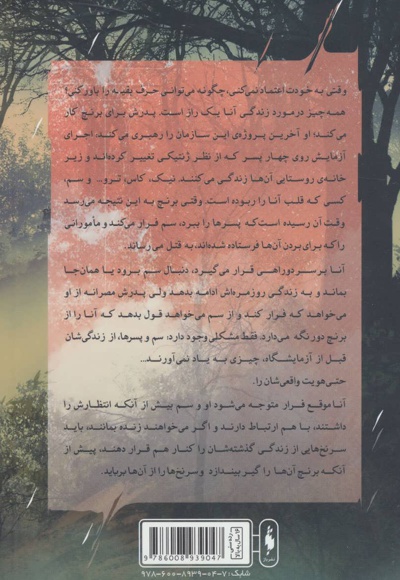 وقتی به خودت اعتماد نمی‌کنی، چگونه می‌توانی حرف بقیه را باور کنی؟
همه‌چیز درمورد زندگی آنا یک راز است. پدرش برای برنچ کار
می‌کند؛ او آخرین پروژه‌ی این سازمان را رهبری می‌کند، اجرای
آزمایش روی چهار پسر که از نظر ژنتیکی تغییر کرده‌اند و زیر
خانه‌ی روستایی آن‌ها زندگی می‌کنند. نیک، کاس، ترو... و سم،
کسی که قلب آنا را ربوده است. وقتی برنچ به این نتیجه می‌رسد
وقت آن رسیده است‌که پسرها را ببرد، سم فرار می‌کند و مأمورانی
را که برای بردن آن‌ها فرستاده شده‌اند، به قتل می‌رساند.
آنا بر سر دوراهی قرار می‌گیرد، دنبال سم برود یا همان‌جا
بماند و به زندگی روزمره‌اش ادامه بدهد ولی پدرش مصرانه از او
می‌خواهد که فرار کند و از سم می‌خواهد قول بدهد که آنا را از
برنچ دور نگه می‌دارد. فقط مشکلی وجود دارد؛ سم و پسرها، از زندگی‌شان
قبل از آزمایشگاه، چیزی به یاد نمی‌آورند...
حتی هویت واقعی‌شان را.
آنا موقع فرار متوجه می‌شود او و سم بیش از آنکه انتظارش را
داشتند، با هم ارتباط دارند و اگر می‌خواهند زنده بمانند، باید
سرنخ‌هایی از زندگی گذشته‌شان را کنار هم قرار دهند، پیش از
آنکه برنچ آن‌ها را گیر بیندازد و سرنخ‌ها را از آن‌ها برباید.
9 786008 939047
شابک: ۷-۰۴-۸۹۳۹-۶۰۰-۹۷۸